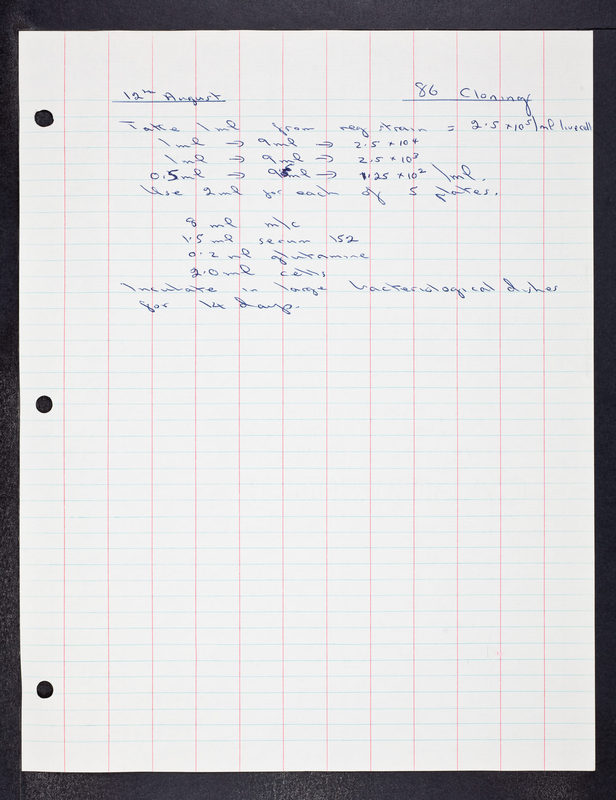 12th August 86 Cloning
Take 1ml from neg strain = 2.5 × 10⁵/ml live cell
1ml → 9ml → 2.5 × 10⁴
1ml → 9ml → 2.5 × 10³
0.5ml → 9.5ml → 1.25 × 10² /ml.
Use 2ml for each of 5 plates.
8 ml m/c
1.5 ml serum 152
0.2 ml glutamine
2.0 ml cells
Incubate in large bacteriological dishes
for 14 days.